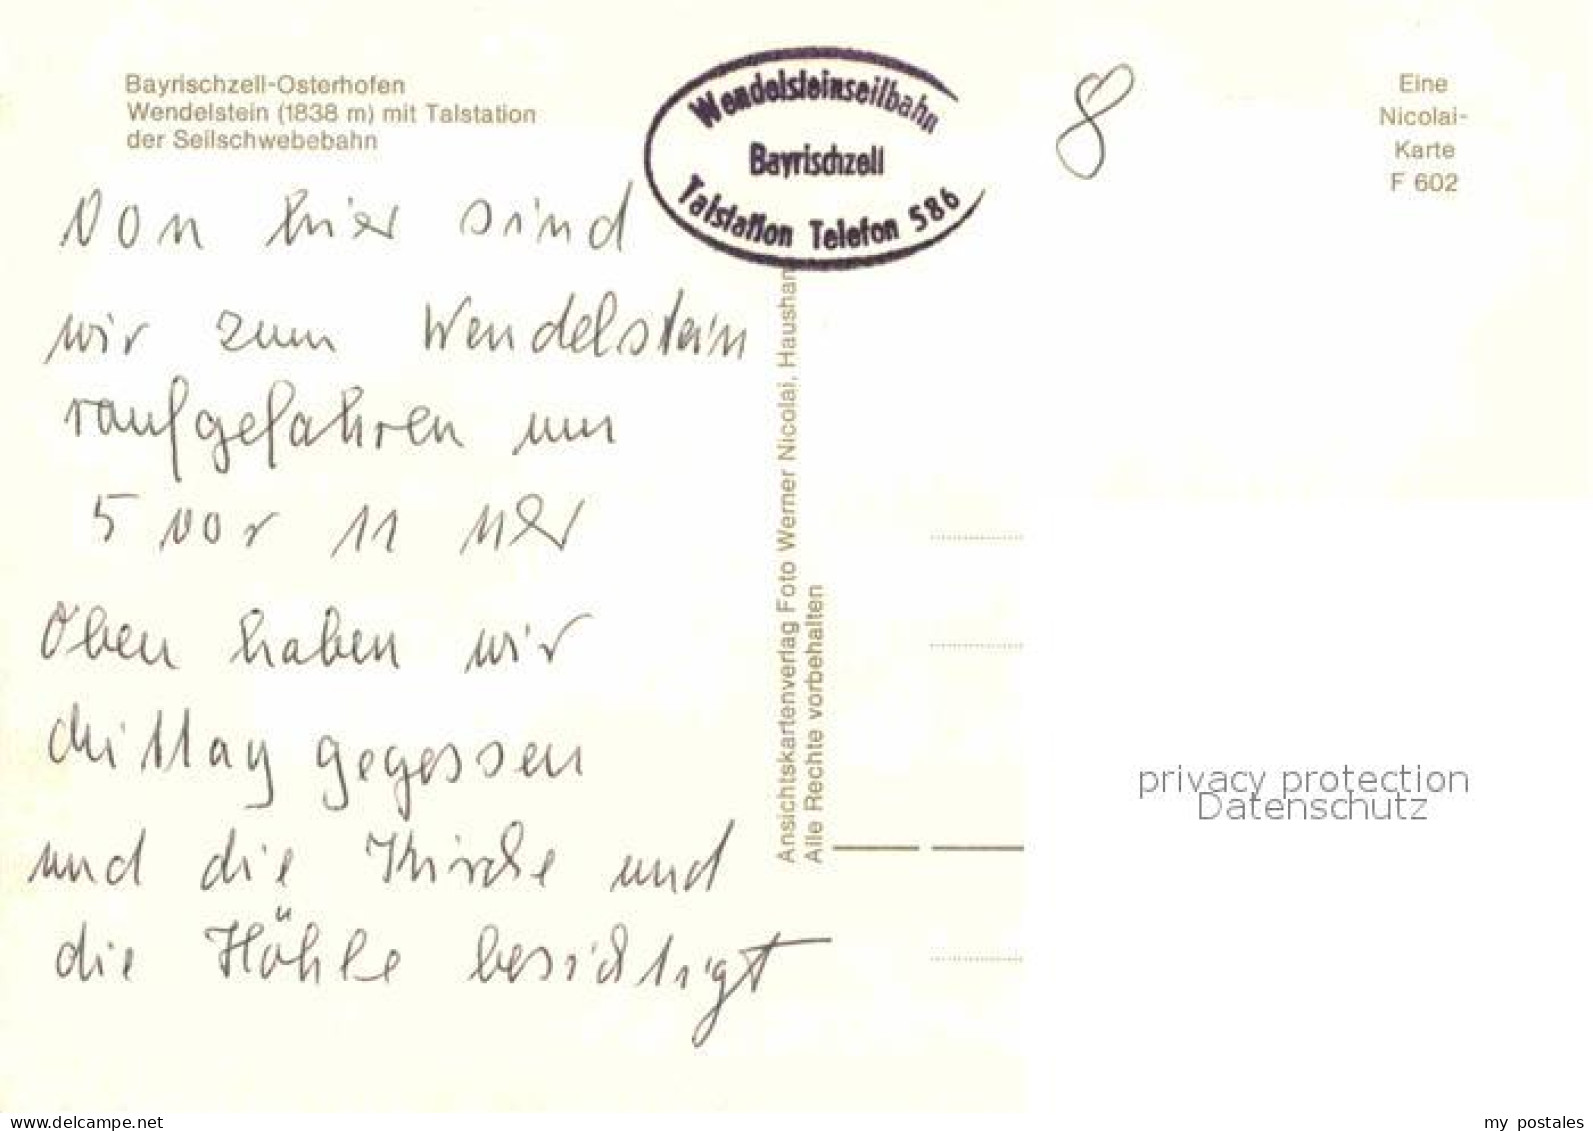 Bayrischzell-Osterhofen
Wendelstein (1838 m) mit Talstation
der Seilschwebebahn
Wendelsteinseilbahn
Bayrischzell
Talstation Telefon 586
8
Eine
Nicolai-
Karte
F 602
Von hier sind
wir zum Wendelstein
raufgefahren um
5 vor 11 Uhr
Oben haben wir
Mittag gegessen
und die Kirche und
die Höhle besichtigt
Ansichtskartenverlag Foto Werner Nicolai, Hausham
Alle Rechte vorbehalten
privacy protection
Datenschutz
www.delcampe.net
my_postales